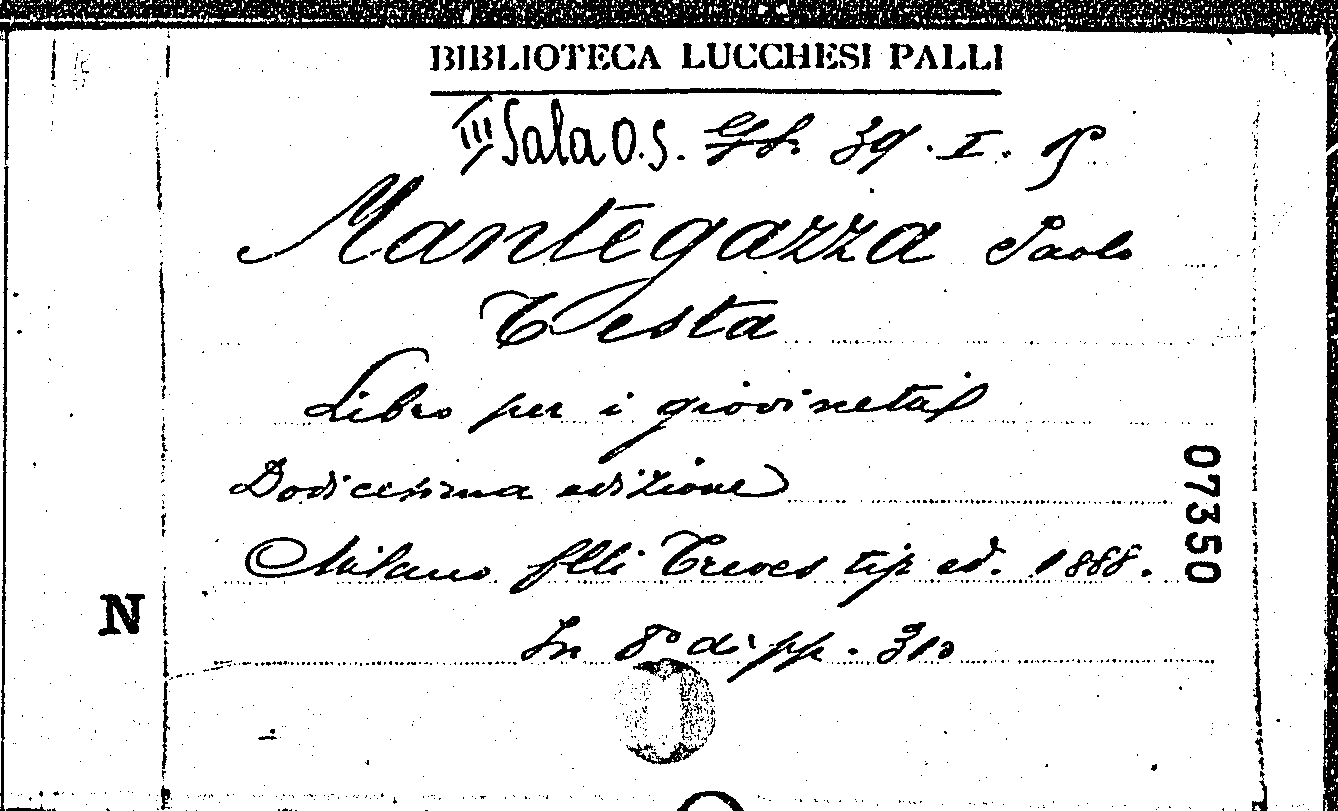 BIBLIOTECA LUCCHESI PALLI
III Sala O.S. 39. I. 15
Mantegazza Paolo
Testa
Libro per i giovinetti
Dodicesima edizione
Milano flli Treves tip ed. 1888.
In 8° di pp. 310
07350
N